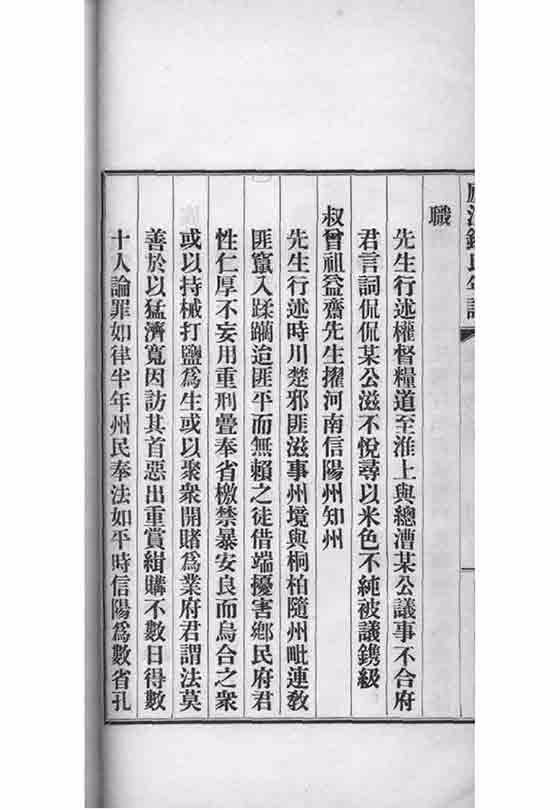 職
先生行述權督糧道至淮上與總漕某公議事不合府
君言詞侃侃某公滋不悅尋以米色不純被議鐫級
叔曾祖益齋先生擢河南信陽州知州
先生行述時川楚邪匪滋事州境與桐柏隨州毗連敎
匪竄入蹂躪迨匪平而無賴之徒借端擾害鄉民府君
性仁厚不妄用重刑疊奉省檄禁暴安良而烏合之衆
或以持械打鹽爲生或以聚衆開賭爲業府君謂法莫
善於以猛濟寬因訪其首惡出重賞緝購不數日得數
十人論罪如律半年州民奉法如平時信陽爲數省孔